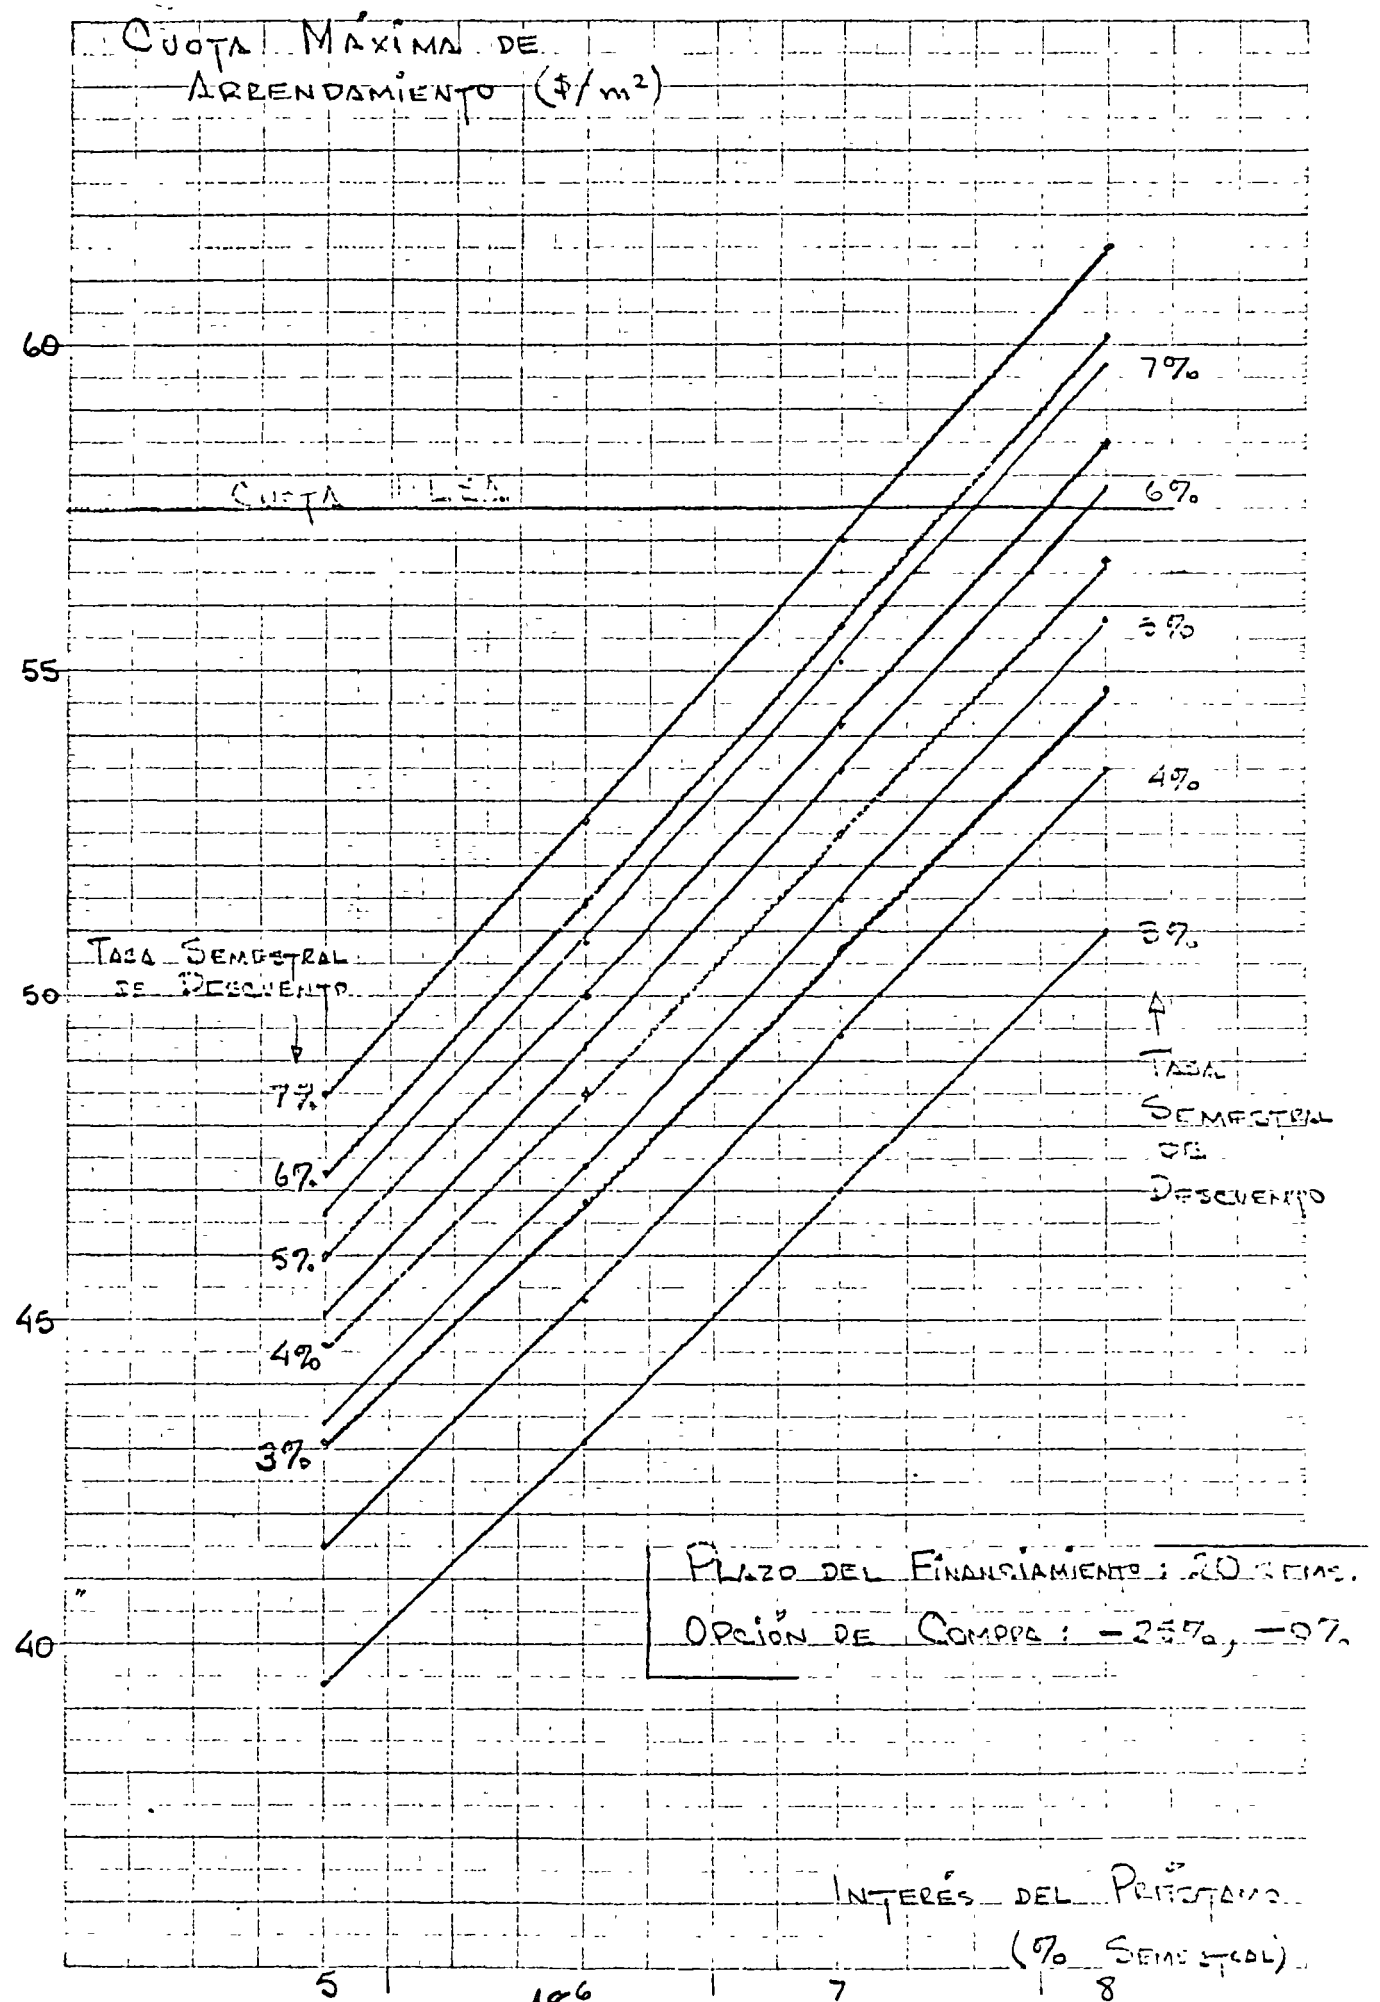 CUOTA MÁXIMA DE
ARRENDAMIENTO ($/m²)
60
7%
6%
CUOTA
5%
55
4%
3%
TASA SEMESTRAL
DE DESCUENTO
50
TASA
SEMESTRAL
DE
DESCUENTO
7%
6%
5%
45
4%
3%
PLAZO DEL FINANCIAMIENTO: 20 SEMS.
OPCIÓN DE COMPRA: -25%, -0%
40
INTERÉS DEL PRÉSTAMO
(% SEMESTRAL)
5 6 7 8